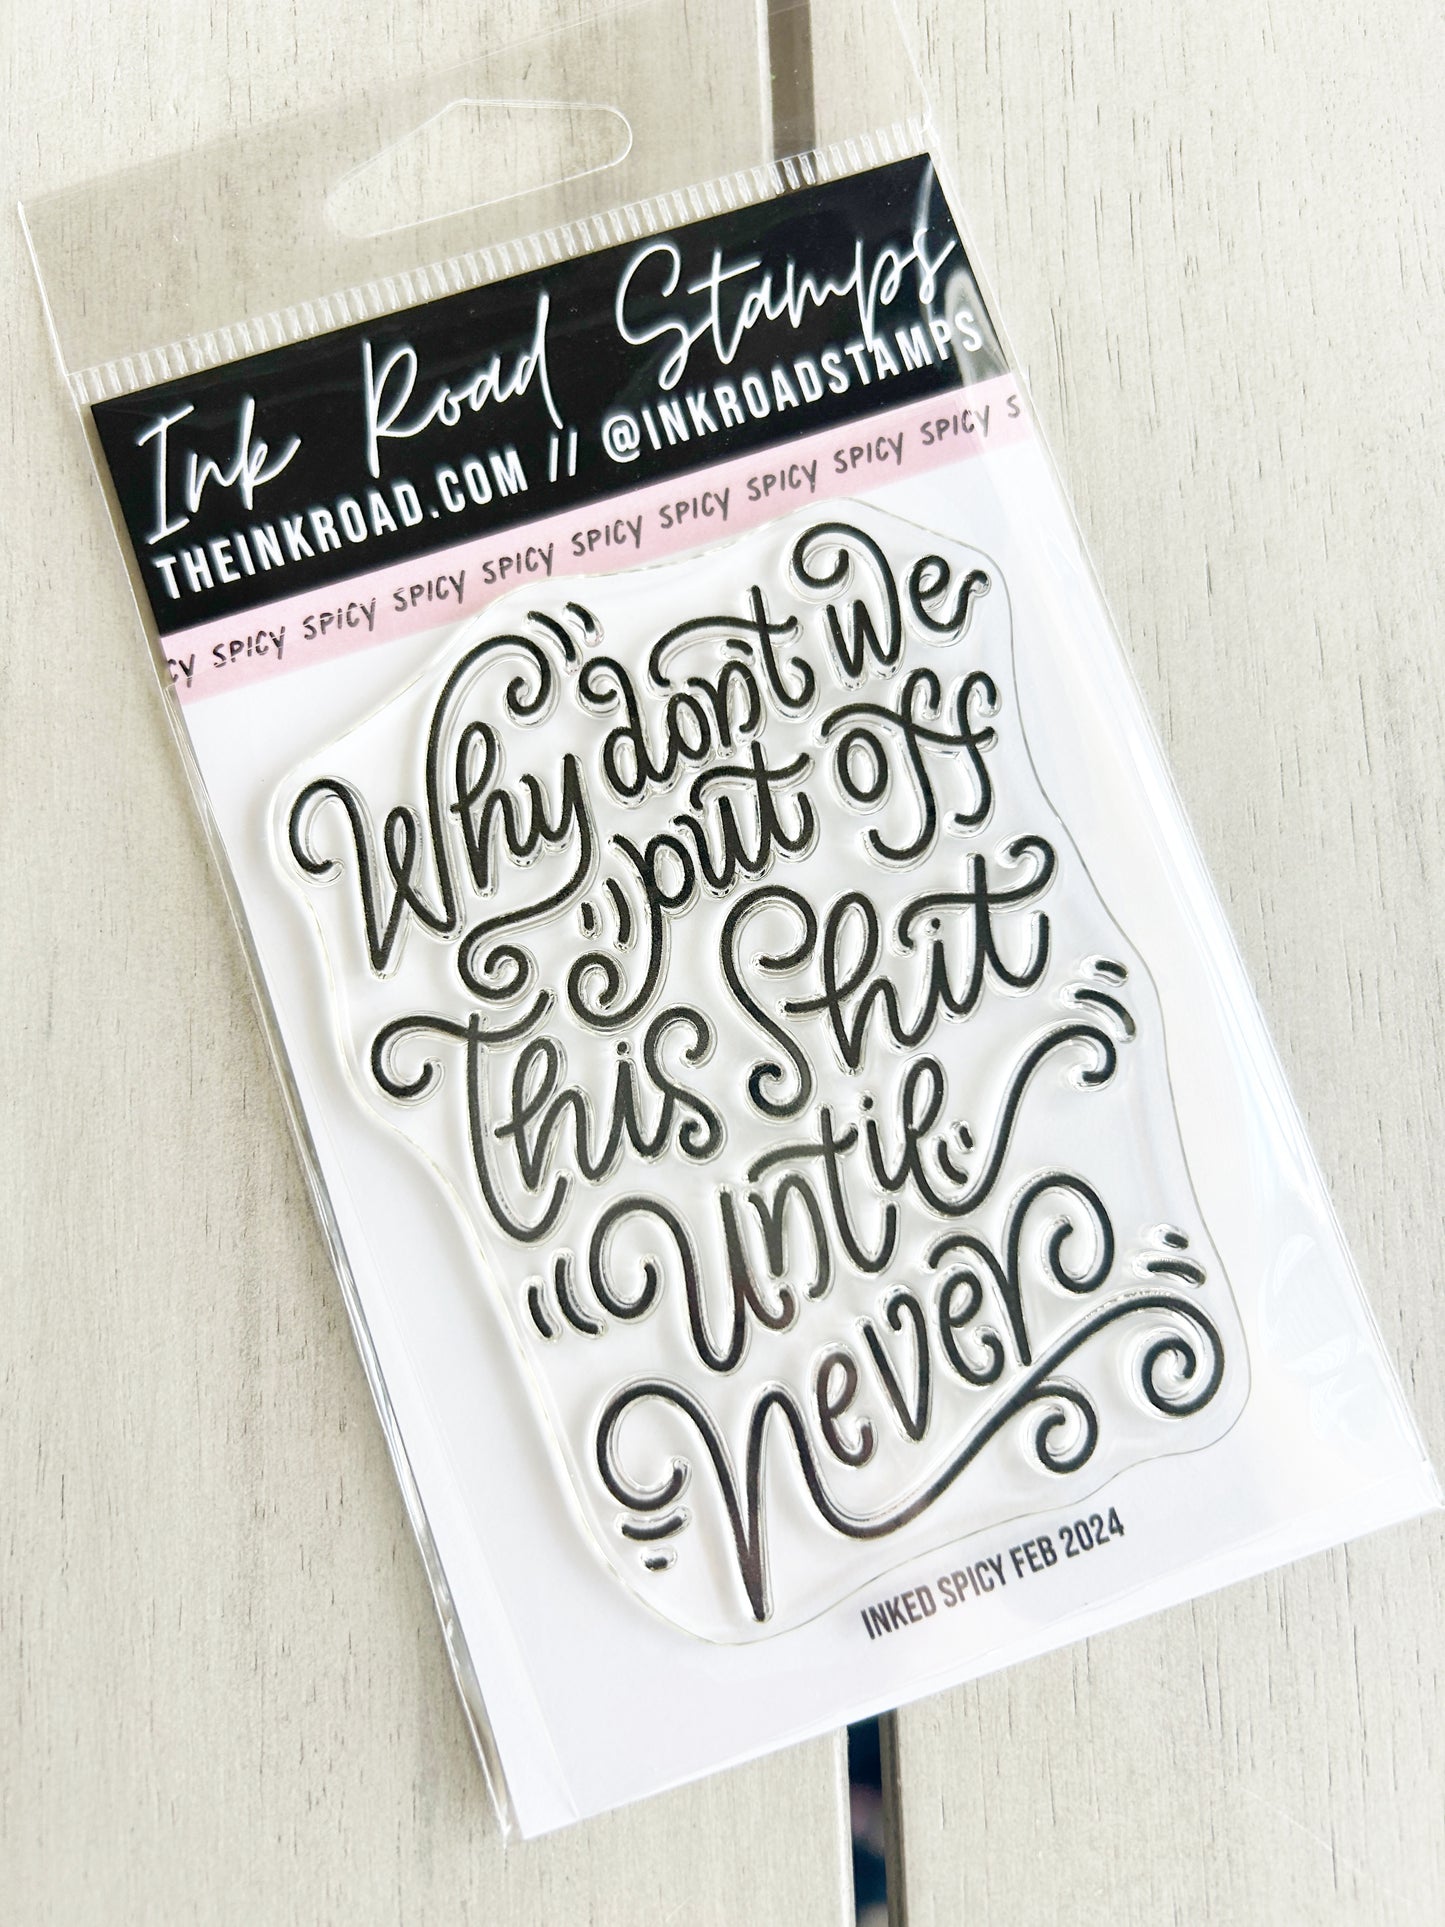 Ink Road Stamps
THEINKROAD.COM // @INKROADSTAMPS
CY SPICY SPICY SPICY SPICY SPICY SPICY SPICY SPICY SPICY S
Why don't we
put off
This Shit
Until
Never
INKED SPICY FEB 2024